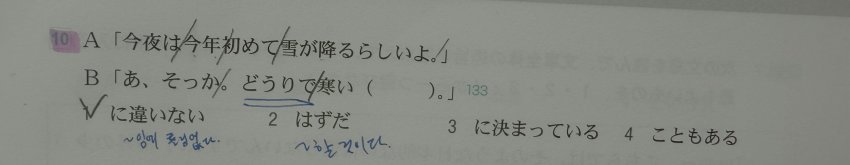 10 A「今夜は今年初めて雪が降るらしいよ。」
B「あ、そっか。どうりで寒い（　　）。」133
1 に違いない 2 はずだ 3 に決まっている 4 こともある
~임에 틀림없다. ~하는 것이다.